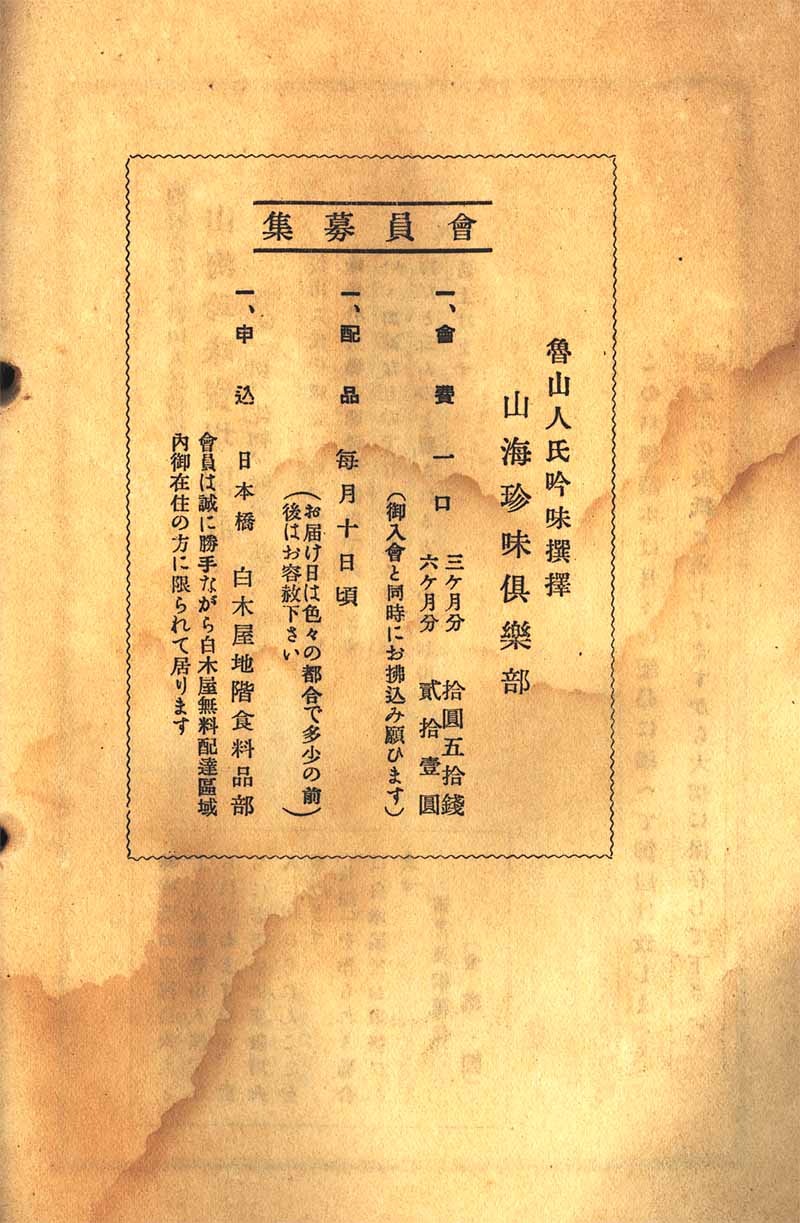 魯山人氏吟味撰擇
山海珍味倶樂部
會員募集
一、會費 一口 三ケ月分 拾圓五拾錢
六ケ月分 貳拾壹圓
(御入會と同時にお拂込み願ひます)
一、配品 每月十日頃
(お届け日は色々の都合で多少の前
後はお容赦下さい)
一、申込 日本橋 白木屋地階食料品部
會員は誠に勝手ながら白木屋無料配達區域
內御在住の方に限られて居ります